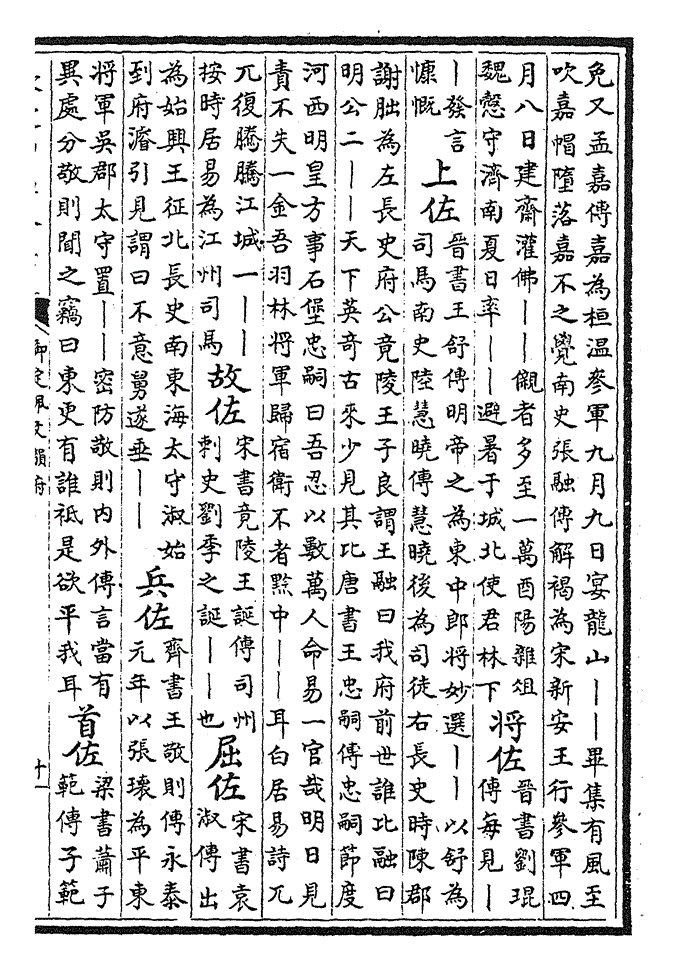 免又孟嘉傳嘉為桓温參軍九月九日宴龍山——畢集有風至
吹嘉帽墮落嘉不之覺南史張融傳解褐為宋新安王行參軍四
月八日建齋灌佛——儭者多至一萬酉陽雜俎
魏慤守濟南夏日率——避暑于城北使君林下
將佐
晉書劉琨
傳每見—
—發言
慷慨
上佐
晉書王舒傳明帝之為東中郎將妙選——以舒為
司馬南史陸慧曉傳慧曉後為司徒右長史時陳郡
謝朏為左長史府公竟陵王子良謂王融曰我府前世誰比融曰
明公二——天下英奇古來少見其比唐書王忠嗣傳忠嗣節度
河西明皇方事石堡忠嗣曰吾忍以數萬人命易一官哉明日見
責不失一金吾羽林將軍歸宿衛不者黔中——耳白居易詩兀
兀復騰騰江城一——
按時居易為江州司馬
故佐
宋書竟陵王誕傳司州
刺史劉季之誕——也
屈佐
宋書袁
淑傳出
為始興王征北長史南東海太守淑始
到府濬引見謂曰不意舅遂垂——
兵佐
齊書王敬則傳永泰
元年以張瓌為平東
將軍吳郡太守置——密防敬則內外傳言當有
異處分敬則聞之竊曰東更有誰祗是欲平我耳
首佐
梁書蕭子
範傳子範
御定佩文韻府
十一